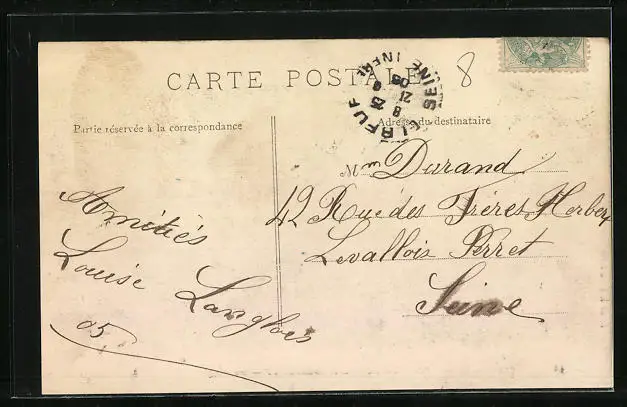 CARTE POSTALE
8
ELBEUF SEINE INFRE
8
21
05
Partie réservée à la correspondance
Adresse du destinataire
Mme Durand
42 Rue des Frères Herbert
Levallois Perret
Seine
Amitiés
Louise
Langlois
05